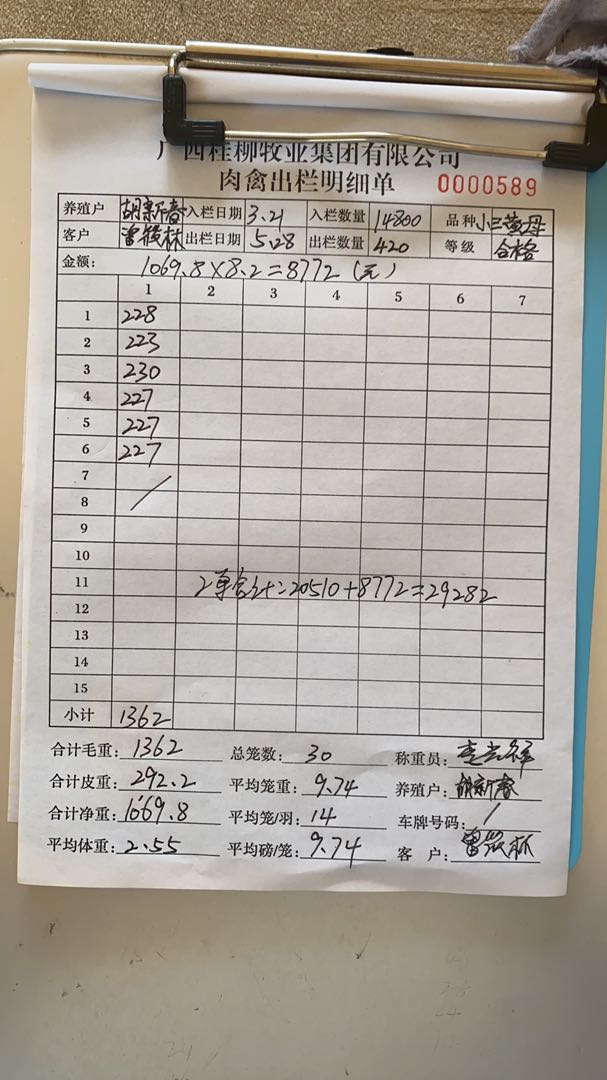 广西桂柳牧业集团有限公司
肉禽出栏明细单 0000589
养殖户 胡新春 入栏日期 3.21 入栏数量 14800 品种 小三黄母
客户 出栏日期 5.28 出栏数量 420 等级 合格
金额: 1069.8×8.2=8772(元)
1 2 3 4 5 6 7
1 228
2 223
3 230
4 227
5 227
6 227
7
8 /
9
10
11 2单合计:20510+8772=29282
12
13
14
15
小计 1362
合计毛重: 1362 总笼数: 30 称重员:
合计皮重: 292.2 平均笼重: 9.74 养殖户: 胡新春
合计净重: 1069.8 平均笼/羽: 14 车牌号码: /
平均体重: 2.55 平均磅/笼: 9.74 客 户: